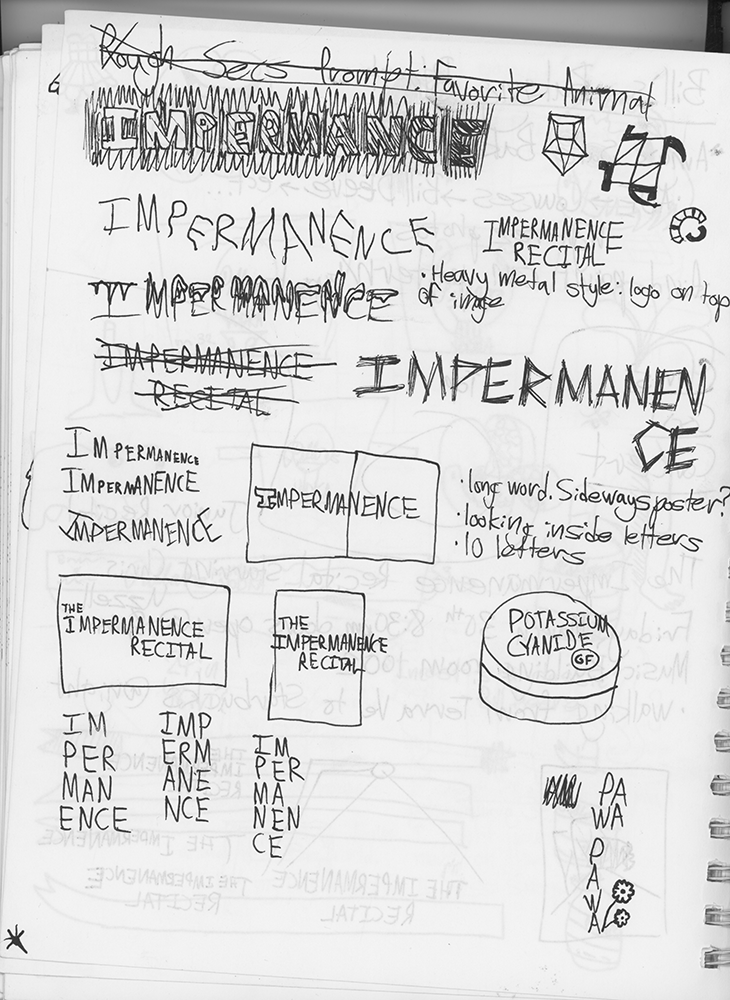 Rough Secs Prompt: Favorite Animal
IMPERMANCE
IMPERMANENCE
IMPERMANENCE
RECITAL
• Heavy metal style: logo on top
of image
IMPERMANENCE
IMPERMANENCE
RECITAL
IMPERMANEN
CE
IMPERMANENCE
IMPERMANENCE
IMPERMANENCE
IMPERMANENCE
• long word. Sideways poster?
• looking inside letters
• 10 letters
THE
IMPERMANENCE
RECITAL
THE
IMPERMANENCE
RECITAL
POTASSIUM
CYANIDE
GF
IM
PER
MAN
ENCE
IMP
ERM
ANE
NCE
IM
PER
MA
NEN
CE
PA
WA
P
A
W
A